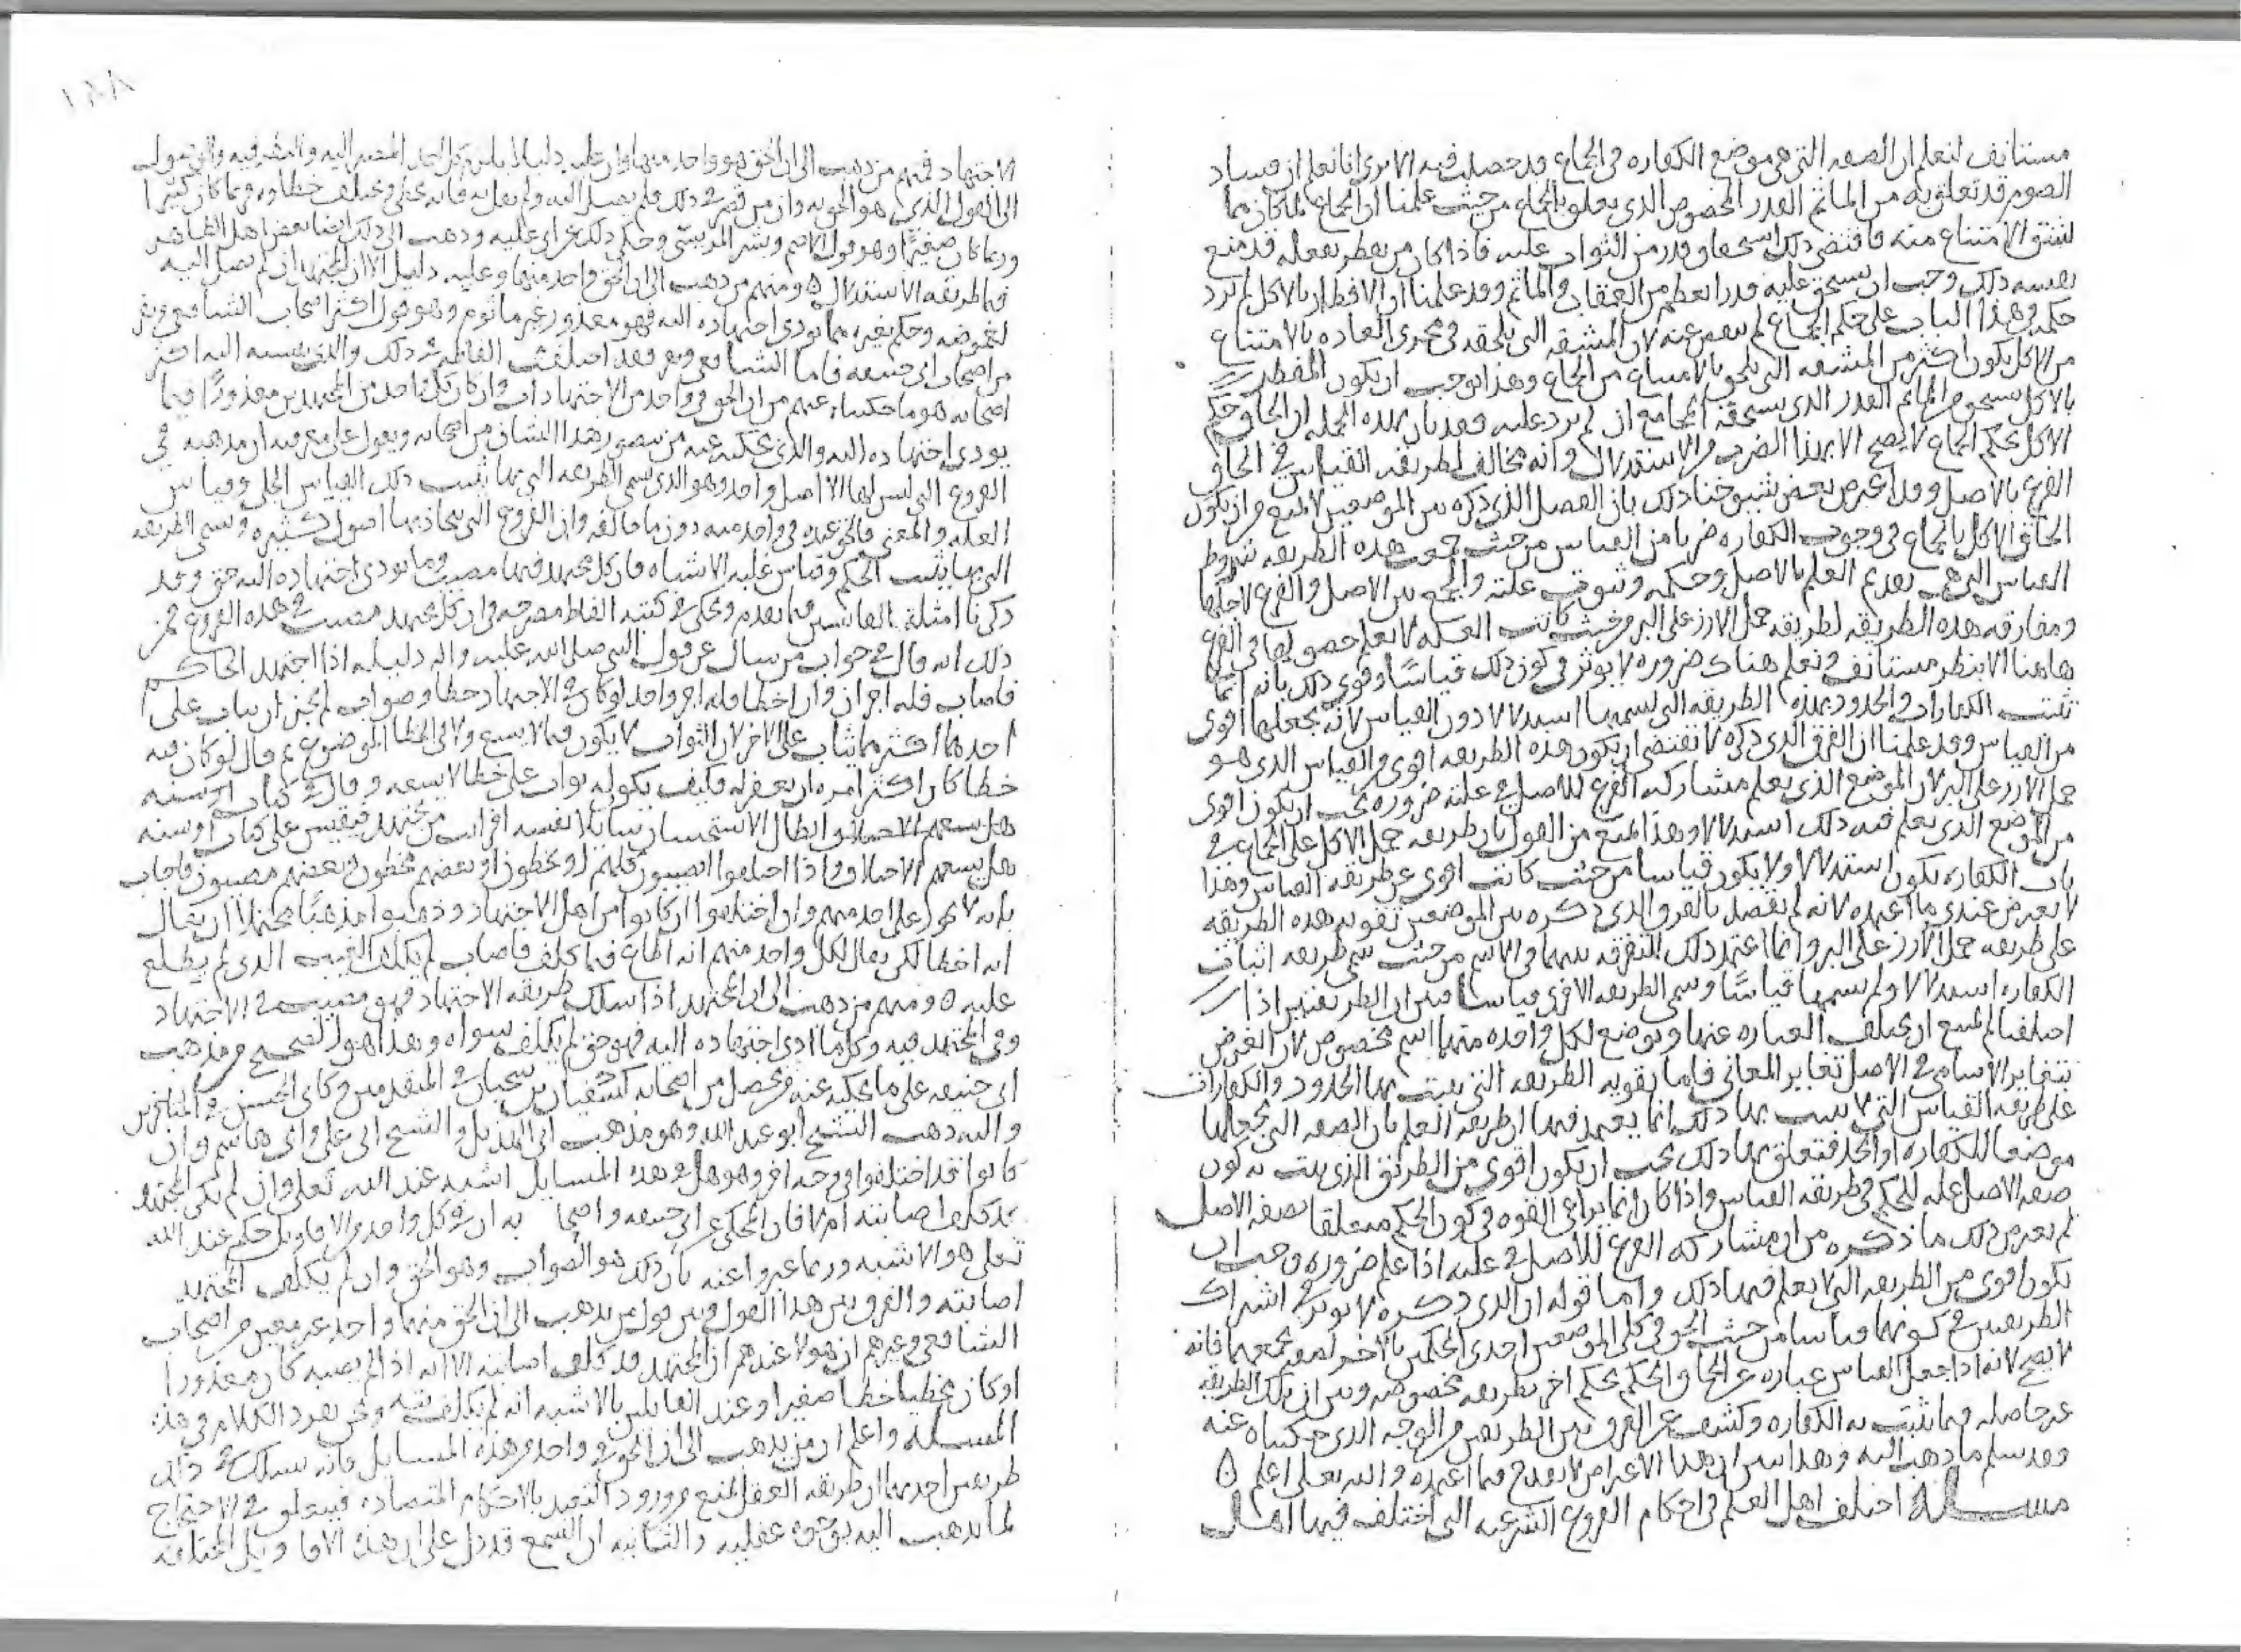 مستانف لنعلم ان الصفه التى هى موضع الكفاره فى الجماع قد حصلت فيه الا ترى انا نعلم ان فساد
الصوم قد تعلق به من الماثم القدر المخصوص الذى يعلق بالجماع من حيث علمنا ان الجماع لما كان مما
يشق الامتناع منه فاقتضى ذلك استحقاق قدر من الثواب عليه فاذا كان من يفطر بفعله قد منع
نفسه ذلك وجب ان يستحق عليه قدرا يعظم من العقاب والماثم وقد علمنا ان الافطار بالاكل لم يرد
حكمه فى هذا الباب على حكم الجماع لم ينقص عنه لان المشقه التى تلحقه فى مجرى العاده بالامتناع
من الاكل يكون اكثر من المشقه التى تلحق بالامتناع من الجماع وهذا يوجب ان يكون المفطر
بالاكل يستحق من الماثم القدر الذى يستحقه المجامع ان لم يرد عليه فقد بان بهذه الجمله ان الحاق حكم
الاكل بحكم الجماع لا يصح الا بهذا الضرب من الاستدلال وانه مخالف لطريقه القياس فى الحاق
الفرع بالاصل وقد اعترض بعض شيوخنا ذلك بان الفصل الذى ذكره بين الموضعين لا يمنع من ان يكون
الحاق الاكل بالجماع فى وجوب الكفاره ضربا من القياس من حيث جمعت هذه الطريقه شروط
القياس التى هى تقدم العلم بالاصل وحكمه وثبوت علته والجمع بين الاصل والفرع لاجلها
ومفارقه هذه الطريقه لطريقه حمل الارز على البر من حيث كانت العله لا نعلم حصولها فى الفرع
هاهنا الا بنظر مستانف ونعلم هناك ضروره لا يوثر فى كون ذلك قياسا وقوى ذلك بانه انما
تثبت الكفارات والحدود بهذه الطريقه التى نسميها استدلالا دون القياس لانه يجعلها اقوى
من القياس وقد علمنا ان الفرق الذى ذكره لا يقتضى ان يكون هذه الطريقه اقوى من القياس الذى هو
حمل الارز على البر لان الموضع الذى يعلم مشاركه الفرع للاصل فى علته ضروره يجب ان يكون اقوى
من الموضع الذى يعلم فيه ذلك استدلالا وهذا يمنع من القول بان طريقه حمل الاكل على الجماع فى
باب الكفاره يكون استدلالا ولا يكون قياسا من حيث كانت اقوى من طريقه القياس وهذا
لا يعترض عندى ما اعتمده لانه لم يقصد بالفرق الذى ذكره بين الموضعين تقويه هذه الطريقه
على طريقه حمل الارز على البر وانما اعتمد ذلك للتفرقه بينهما فى الاسم من حيث سمى طريقه اثبات
الكفاره استدلالا ولم يسمها قياسا وسمى الطريقه الاخرى قياسا فبين ان الطريقتين اذا
اختلفتا لم يمتنع ان يختلف العباره عنهما ويوضع لكل واحده منهما اسم مخصوص لان الغرض
بتغاير الاسامى فى الاصل تغاير المعانى فاما تقويه الطريقه التى يثبت بها الحدود والكفارات
على طريقه القياس التى لا يثبت بها ذلك انما يعتمد فيها ان طريقه العلم بان الصفه التى تجعلها
موضعا للكفاره او الحد فتعلق بها ذلك يجب ان يكون اقوى من الطريق الذى يثبت به كون
صفه الاصل عله للحكم فى طريقه القياس واذا كان انما يراعى القوه فى كون الحكم متعلقا بصفه الاصل
لم يعترض ذلك ما ذكره من ان مشاركه الفرع للاصل فى علته اذا علم ضروره وجب ان
يكون اقوى من الطريقه التى لا يعلم فيها ذلك واما قوله ان الذى ذكره لا يوثر فى اشتراك
الطريقين فى كونهما قياسا من حيث الحق فى كلى الموضعين احدى الحكمين بالاخر لمعنى يجمعهما فانه
لا يصح لانه اذا جعل القياس عباره عن الحاق الحكم بحكم اخر بطريقه مخصوصه وبين ان تلك الطريقه
غير حاصله فيما يثبت به الكفاره وكشف عن الفرق بين الطريقين من الوجه الذى حكيناه عنه
وقد سلم ما ذهب اليه وبهذا يبين ان هذا الاعتراض لا يقدح فيما اعتمده والله تعلى اعلم ه
مسله اختلف اهل العلم فى احكام الفروع الشرعيه التى اختلف فيها اهل
الاجتهاد فمنهم من ذهب الى ان الحق هو واحد منها وان عليه دليلا يلزم كل احد المصير اليه والنظر فيه والوصول
الى القول الذى هو الحق به وان من قصر فى ذلك فلم يصل اليه ولم يقل به فانه مخطى ويختلف خطاوه فربما كان كبيرا
وربما كان صغيرا وهو قول الاصم وبشر المريسى وحكى ذلك عن ابن عليه وذهب الى ذلك ايضا بعض اهل الظاهر
فى طريقه الاستدلال ه ومنهم من ذهب الى ان الحق واحد منها وعليه دليل الا ان المجتهد ان لم يصل اليه
لغموضه وحكم بغيره مما يودى اجتهاده اليه فهو معذور غير ماثوم وهو قول اكثر اصحاب الشافعى ونفر
من اصحاب ابى حنيفه فاما الشافعى فقد اختلفت الفاظه فى ذلك والذى ينسبه اليه اكثر
اصحابه هو ما حكيناه عنهم من ان الحق فى واحد من الاجتهادات وان كان كل واحد من المجتهدين معذورا فيما
يودى اجتهاده اليه والذى يحكيه عنه من ينصر هذا الشان من اصحابه ويعول على معرفته ان مذهبه فى
الفروع التى ليس لها الا اصل واحد وهو الذى سمى الطريقه التى بها يثبت ذلك القياس الجلى وقياس
العله والمعنى فالحق عنده فى واحد منه دون ما خالفه وان الفروع التى تتجاذبها اصول كثيره وسمى الطريقه
التى بها يثبت الحكم وقياس غلبه الاشباه فان كل مجتهد فيها مصيب وما يودى اجتهاده اليه حق وقد
ذكرنا امثله القياسين فيما تقدم وحكى فى كتبه الفاظ مصرحه فى ان كل مجتهد مصيب فى هذه الفروع فمن
ذلك انه قال فى جواب من سال عن قول النبى صلى الله عليه واله دليله اذا اجتهد الحاكم
فاصاب فله اجران وان اخطا فله اجر واحد لو كان فى الاجتهاد خطا وصواب لم يجز ان يثاب على
احدهما اكثر مما يثاب على الاخر لان الثواب لا يكون فيما لا يسع ولا فى الخطا الموضوع ثم قال لو كان فيه
خطا كان اكثر امره ان يغفر له فكيف يكون له ثواب على خطا لا يسعه وقال فى كتاب
ابطال الاستحسان سايلا نفسه افرايت من مجتهد فيقيس على كتاب او سنه
هل يسعهم الاختلاف واذا اختلفوا امصيبون كلهم او مخطون او بعضهم مخطون وبعضهم مصيبون فاجاب
بانه لا يجوز على احد منهم وان اختلفوا ان كانوا من اهل الاجتهاد وذهبوا مذهبا محتملا ان يقال
انه اخطا لكن يقال لكل واحد منهم انه اطاع فيما كلف فاصاب لم يكلف الغيب الذى لم يطلع
عليه ه ومنهم من ذهب الى ان المجتهد اذا سلك طريقه الاجتهاد فهو مصيب فى الاجتهاد
وفى المجتهد فيه وكل ما ادى اجتهاده اليه فهو حق لم يكلف سواه وهذا هو الصحيح من مذهب
ابى حنيفه على ما يحكيه عنه من يحصل من اصحابه كسفيان بن سحبان فى المتقدمين وكابى الحسن فى المتاخرين
واليه ذهب الشيخ ابو عبد الله وهو مذهب ابى الهذيل والشيخ ابى على وابى هاشم وان
كانوا قد اختلفوا فى وجه اخر وهو هل فى هذه المسايل اشبه عند الله تعلى وان لم يكن المجتهد
قد كلف اصابته ام لا فان المحكى عن ابى حنيفه واصحابه ان فى كل واحد من الاقاويل حكم عند الله
تعلى هو الاشبه وربما عبروا عنه بان ذلك هو الصواب وهو الحق وان لم يكلف المجتهد
اصابته والفرق بين هذا القول وبين قول من يذهب الى ان الحق منها واحد غير معين من اصحاب
الشافعى وغيرهم ان هولا عندهم ان المجتهد قد كلف اصابته الا انه اذا لم يصبه كان معذورا
او كان مخطيا خطا صغيرا وعند القايلين بالاشبه انه لم يكلف ونحن نفرد الكلام فى هذه
المسله واعلم ان من يذهب الى ان الحق فى واحد من هذه المسايل فانه يسلك فى ذلك
طريقين احدهما ان طريقه العقل تمنع من ورود التعبد بالاحكام المتضاده فيتعلق فى الاحتجاج
لما يذهب اليه بوجوه عقليه والثانيه ان السمع قد دل على ان هذه الاقاويل المختلفه